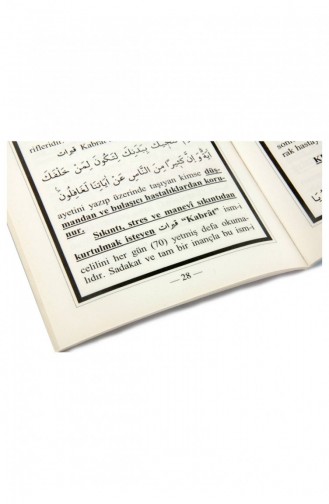 rifleridir. قبرات Kabra
نُنَجِّيكَ بِبَدَنِكَ لِتَكُونَ لِمَنْ خَلْفَكَ
اٰيَةً وَاِنَّ كَثِيرًا مِنَ النَّاسِ عَنْ اٰيَاتِنَا لَغَافِلُونَ
ayetini yazıp üzerinde taşıyan kimse düş-
mandan ve bulaşıcı hastalıklardan koru-
nur.
Sıkıntı, stres ve manevî sıkıntıdan
kurtulmak isteyen قبرات "Kabrât" ism-i
celilini her gün (70) yetmiş defa okuma-
lıdır. Sadakat ve tam bir inançla bu ism-i
— 28 —
son
rak hasta
K